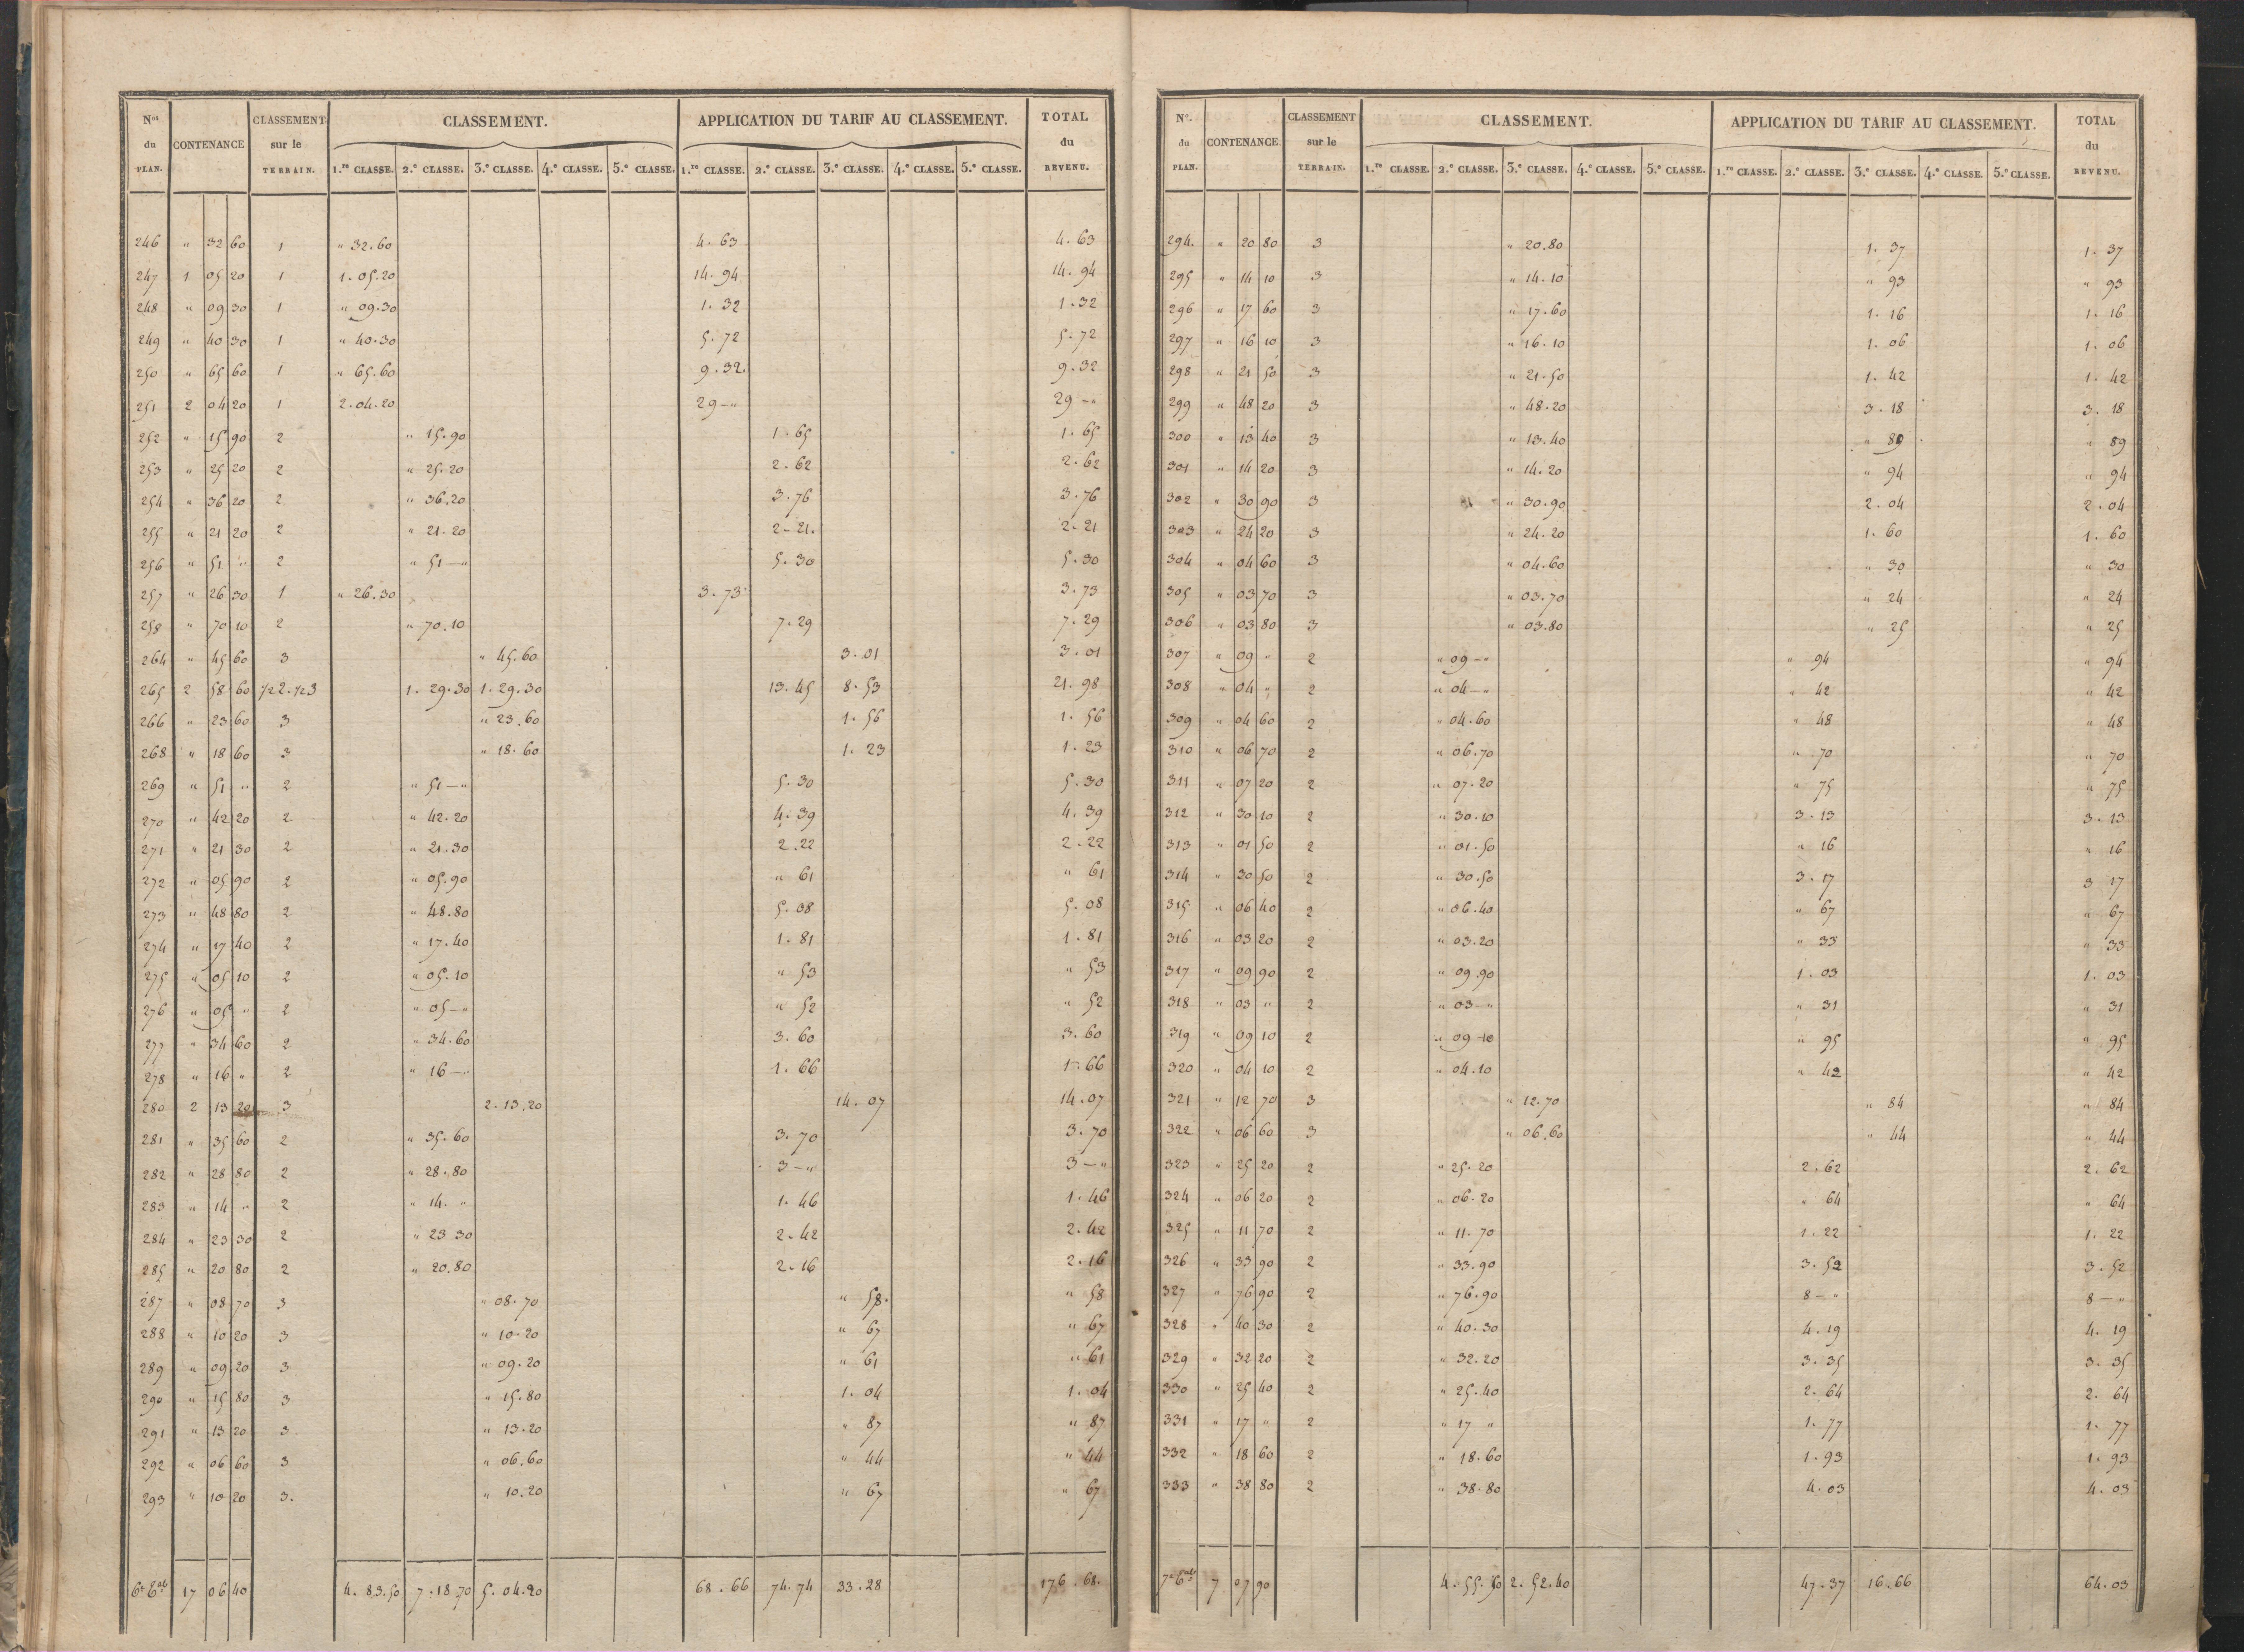 Nos du PLAN. CONTENANCE CLASSEMENT sur le TERRAIN. CLASSEMENT. APPLICATION DU TARIF AU CLASSEMENT. TOTAL du REVENU.
1.re CLASSE. 2.e CLASSE. 3.e CLASSE. 4.e CLASSE. 5.e CLASSE. 1.re CLASSE. 2.e CLASSE. 3.e CLASSE. 4.e CLASSE. 5.e CLASSE.
246 " 32 60 1 " 32.60 4.63 4.63
247 1 05 20 1 1.05.20 14.94 14.94
248 " 09 30 1 " 09.30 1.32 1.32
249 " 40 30 1 " 40.30 5.72 5.72
250 " 65 60 1 " 65.60 9.32 9.32
251 2 04 20 1 2.04.20 29 - " 29 - "
252 " 15 90 2 " 15.90 1.65 1.65
253 " 25 20 2 " 25.20 2.62 2.62
254 " 36 20 2 " 36.20 3.76 3.76
255 " 21 20 2 " 21.20 2-21. 2.21
256 " 51 " 2 " 51 - " 5.30 5.30
257 " 26 30 1 " 26.30 3.73 3.73
258 " 70 10 2 " 70.10 7.29 7.29
264 " 45 60 3 " 45.60 3.01 3.01
265 2 58 60 1/2 2. 1/2 3 1.29.30 1.29.30 13.45 8.53 21.98
266 " 23 60 3 " 23.60 1.56 1.56
268 " 18 60 3 " 18.60 1.23 1.23
269 " 51 " 2 " 51 - " 5.30 5.30
270 " 42 20 2 " 42.20 4.39 4.39
271 " 21 30 2 " 21.30 2.22 2.22
272 " 05 90 2 " 05.90 " 61 " 61
273 " 48 80 2 " 48.80 5.08 5.08
274 " 17 40 2 " 17.40 1.81 1.81
275 " 05 10 2 " 05.10 " 53 " 53
276 " 05 " 2 " 05 - " " 52 " 52
277 " 34 60 2 " 34.60 3.60 3.60
278 " 16 " 2 " 16 - " 1.66 1.66
280 2 13 20 3 2.13.20 14.07 14.07
281 " 35 60 2 " 35.60 3.70 3.70
282 " 28 80 2 " 28.80 3 - " 3 - "
283 " 14 " 2 " 14. " 1.46 1.46
284 " 23 30 2 " 23 30 2.42 2.42
285 " 20 80 2 " 20.80 2-16 2.16
287 " 08 70 3 " 08.70 " 58. " 58
288 " 10 20 3 " 10.20 " 67 " 67
289 " 09 20 3 " 09.20 " 61 " 61
290 " 15 80 3 " 15.80 1.04 1.04
291 " 13 20 3 " 13.20 " 87 " 87
292 " 06 60 3 " 06.60 " 44 " 44
293 " 10 20 3. " 10.20 " 67 " 67
17 06 40 4.83.50 7.18.70 5.04.20 68.66 74.74 33.28 176.68.
N°. du PLAN. CONTENANCE CLASSEMENT sur le TERRAIN. CLASSEMENT. APPLICATION DU TARIF AU CLASSEMENT. TOTAL du REVENU.
1.re CLASSE. 2.e CLASSE. 3.e CLASSE. 4.e CLASSE. 5.e CLASSE. 1.re CLASSE. 2.e CLASSE. 3.e CLASSE. 4.e CLASSE. 5.e CLASSE.
294. " 20 80 3 " 20.80 1.37 1.37
295 " 14 10 3 " 14.10 " 93 " 93
296 " 17 60 3 " 17.60 1.16 1.16
297 " 16 10 3 " 16.10 1.06 1.06
298 " 21 50 3 " 21.50 1.42 1.42
299 " 48 20 3 " 48.20 3.18 3.18
300 " 13 40 3 " 13.40 " 89 " 89
301 " 14 20 3 " 14.20 " 94 " 94
302 " 30 90 3 " 30.90 2.04 2.04
303 " 24 20 3 " 24.20 1.60 1.60
304 " 04 60 3 " 04.60 " 30 " 30
305 " 03 70 3 " 03.70 " 24 " 24
306 " 03 80 3 " 03.80 " 25 " 25
307 " 09 " 2 " 09 - " " 94 " 94
308 " 04 " 2 " 04 - " " 42 " 42
309 " 04 60 2 " 04.60 " 48 " 48
310 " 06 70 2 " 06.70 " 70 " 70
311 " 07 20 2 " 07.20 " 75 " 75
312 " 30 10 2 " 30.10 3.13 3.13
313 " 01 50 2 " 01.50 " 16 " 16
314 " 30 50 2 " 30.50 3.17 3 17
315 " 06 40 2 " 06.40 " 67 " 67
316 " 03 20 2 " 03.20 " 33 " 33
317 " 09 90 2 " 09.90 1.03 1.03
318 " 03 " 2 " 03 - " " 31 " 31
319 " 09 10 2 " 09-10 " 95 " 95
320 " 04 10 2 " 04.10 " 42 " 42
321 " 12 70 3 " 12.70 " 84 " 84
322 " 06 60 3 " 06.60 " 44 " 44
323 " 25 20 2 " 25.20 2.62 2.62
324 " 06 20 2 " 06.20 " 64 " 64
325 " 11 70 2 " 11.70 1.22 1.22
326 " 33 90 2 " 33.90 3.52 3.52
327 " 76 90 2 " 76.90 8 - " 8 - "
328 " 40 30 2 " 40.30 4.19 4.19
329 " 32 20 2 " 32.20 3.35 3.35
330 " 25 40 2 " 25.40 2.64 2.64
331 " 17 " 2 " 17 " 1.77 1.77
332 " 18 60 2 " 18.60 1.93 1.93
333 " 38 80 2 " 38.80 4.03 4.03
7 07 90 4.55.50 2.52.40 47.37 16.66 64.03